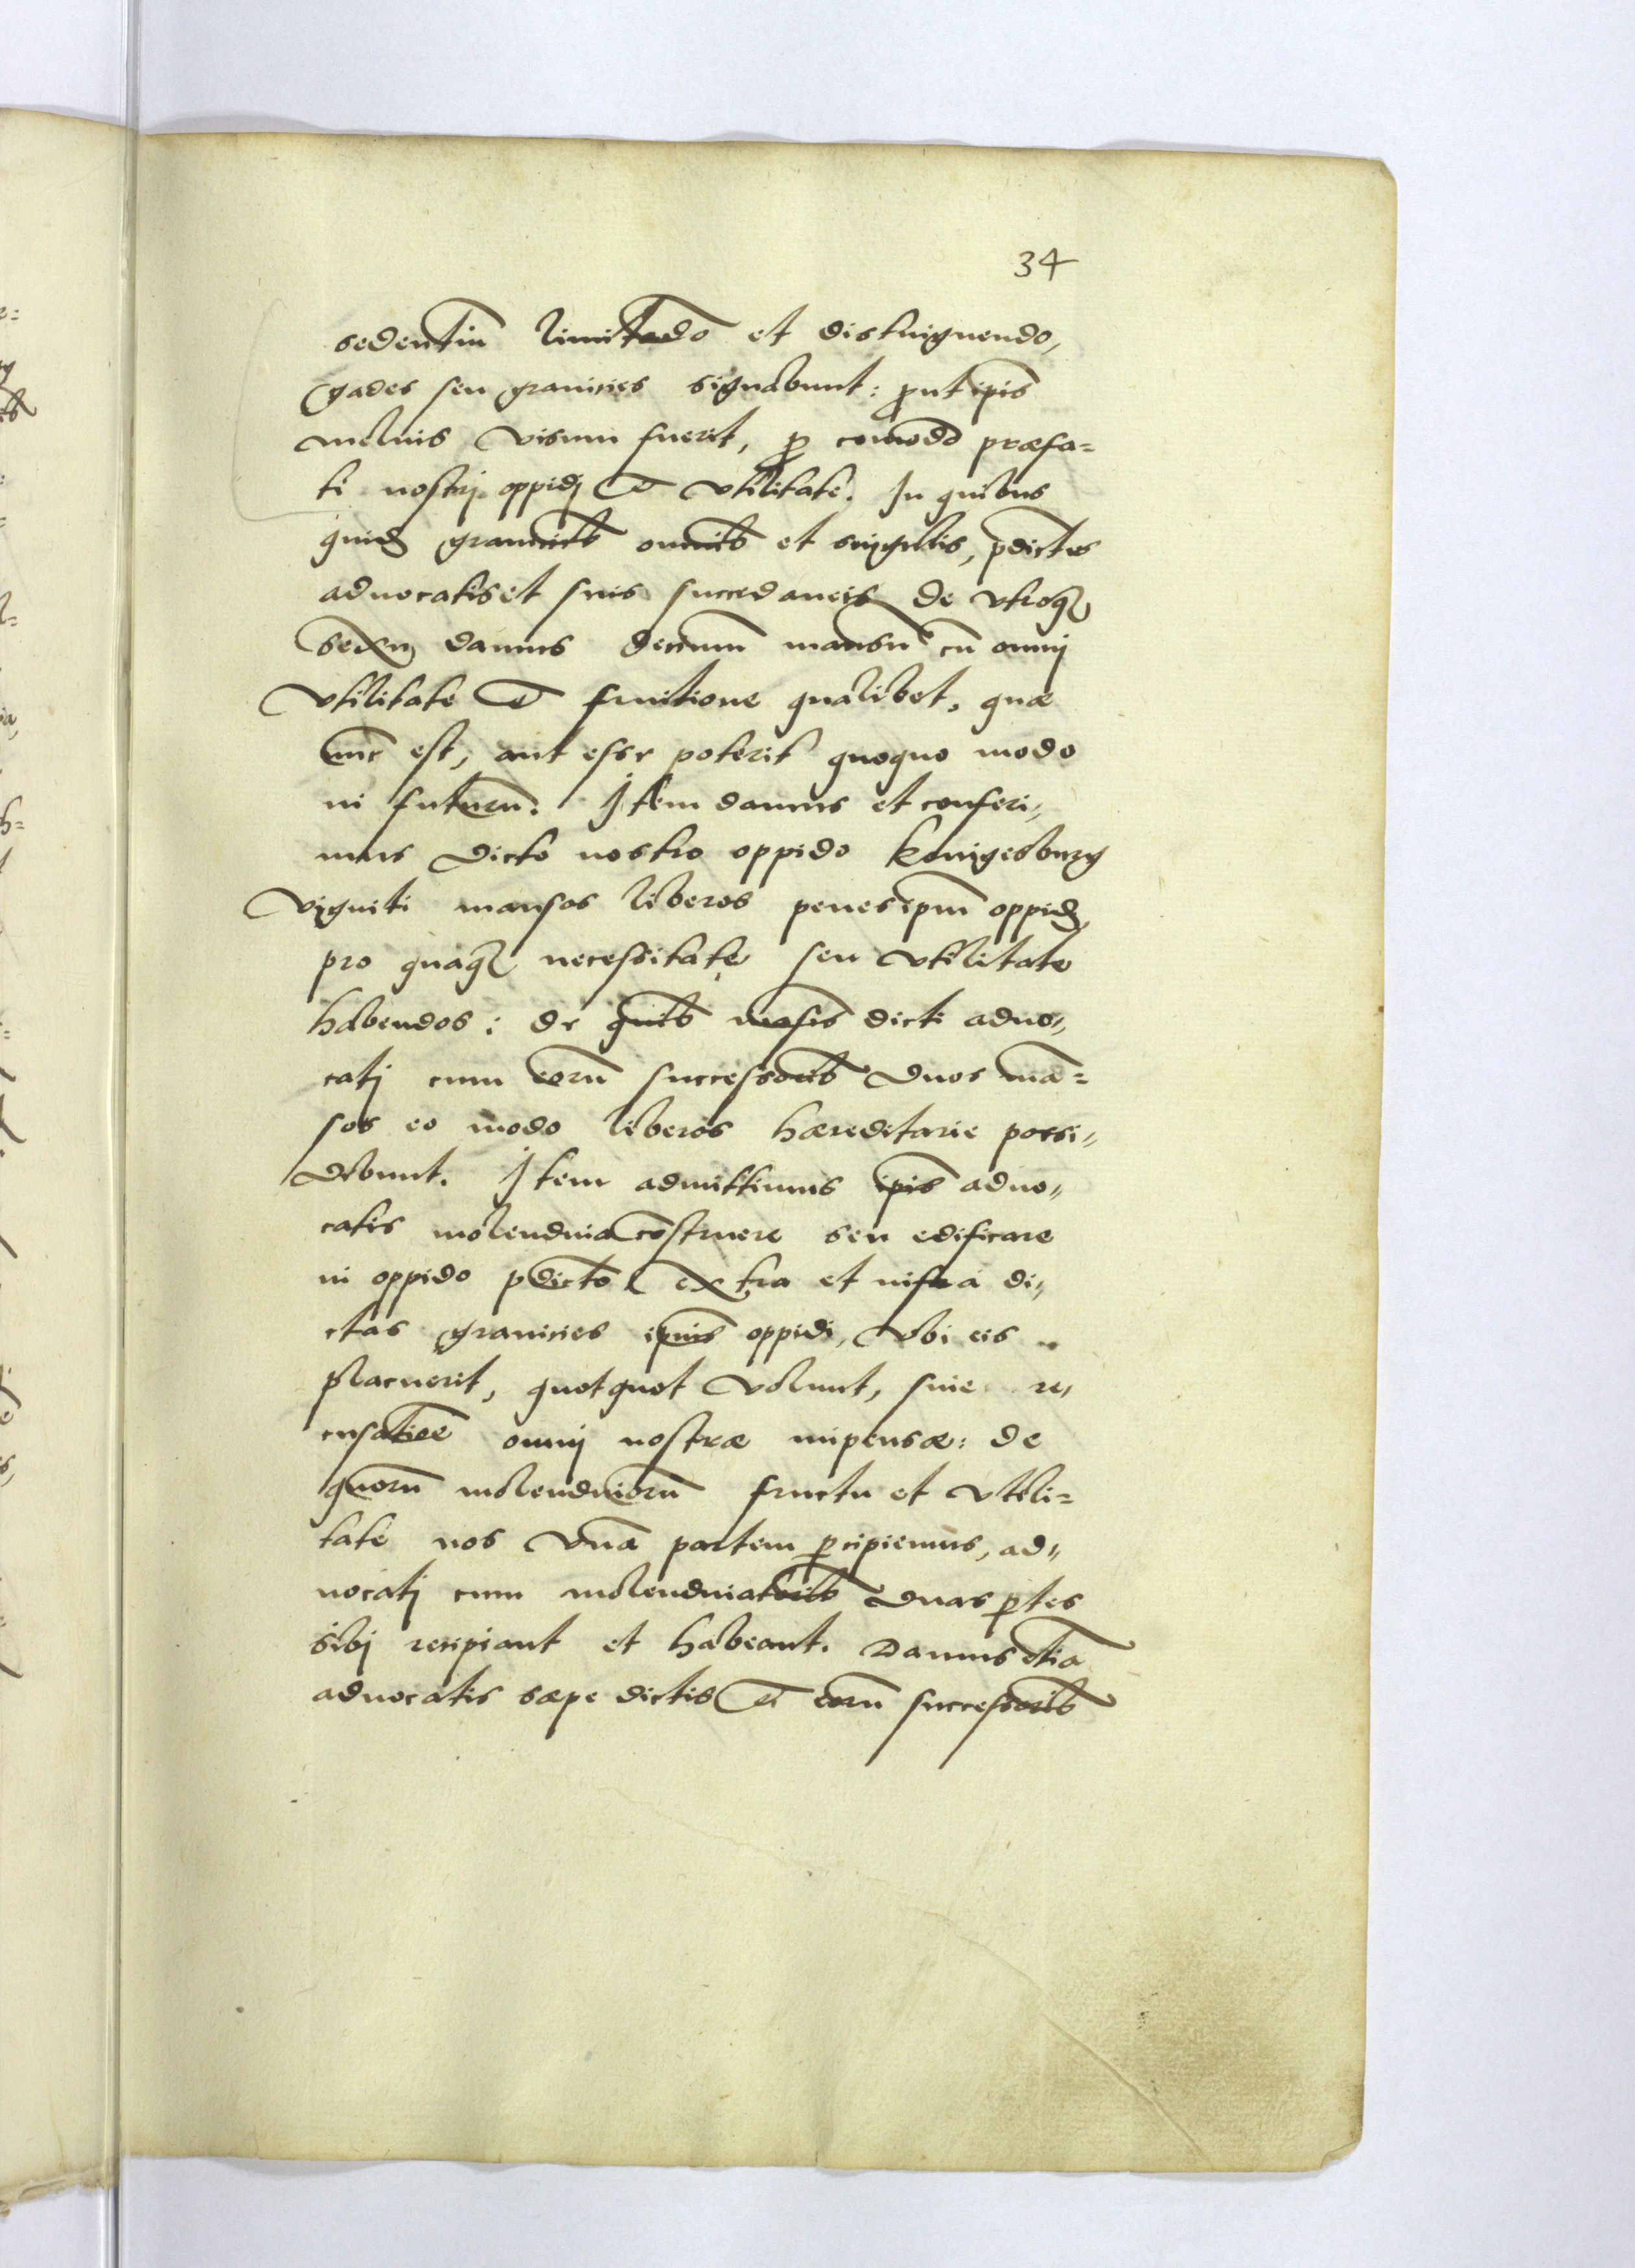 34
sedentiū limitādo et distinguendo,
gades seu granicies signabunt: prout ipīs
melius visum fuerit, pro comodo præfa=
ti nostrj oppidj et vtilitate. In quibus
quidē granicīb omnīb et singulis, p̄dictis
aduocatis et suis succedaneis de vtroq̄
sexu damus decimum mansū cū omnj
vtilitate et fruitione qualibet, quæ
nūc est, aut esse poterit quoquo modo
in futurū. Item damus et conferi,,
mus dicto nostro oppido Konigesburg
viginti mansos liberos penes ipm̄ oppidū
pro quaq̄ necessitate seu vtilitate
habendos: de quīb māsis dicti aduo,,
catj cum eorū successorīb duos mā=
sos eo modo liberos hæreditarie possi,,
debunt. Item admittimus ipīs aduo,,
catis molendina cōstruere seu edificare
in oppido p̄dicto extra et infra di,,
ctas granicies ipīus oppidi, vbi eis
placuerit, quotquot volunt, sine re,,
cusatiōe omnj nostræ impensæ: de
quorū molendinorū fructu et vtili=
tate nos vnā partem p̱cipiemus, ad,,
uocatj cum molendinatorīb duas p̱tes
sibj recipiant et habeant. Damus etiā
aduocatis sæpe dictis et eorū successorīb